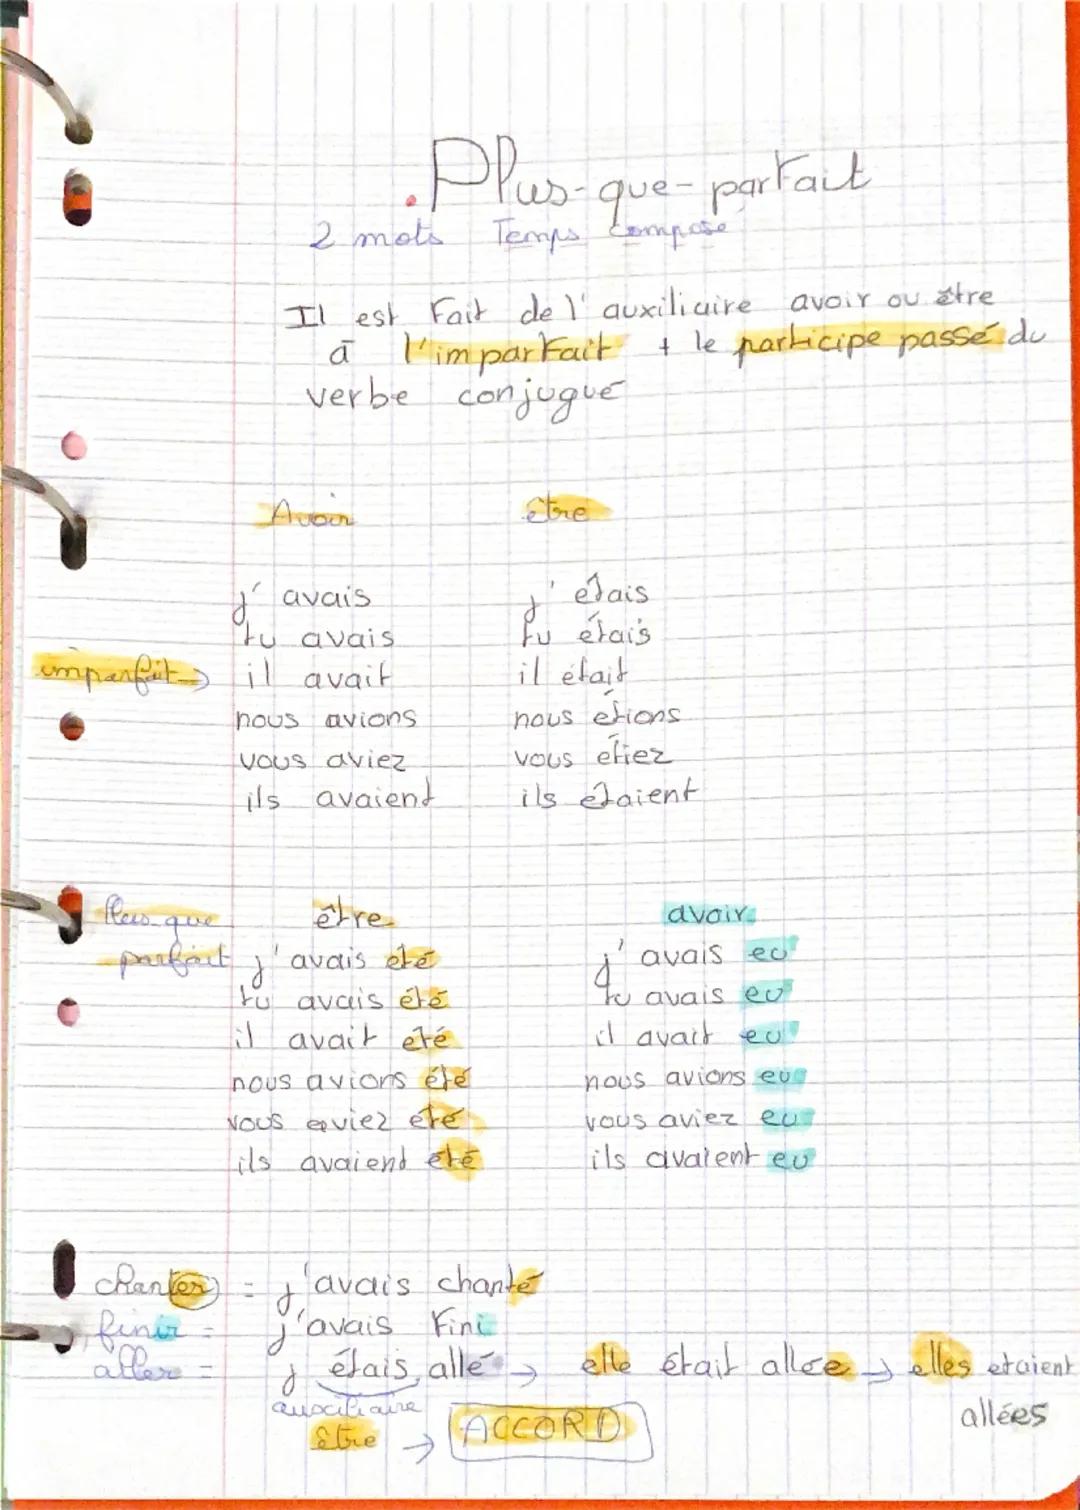 . Plus-que-parfait
2 mots Temps composé
Il est fait de l'auxiliaire avoir ou être
à l'imparfait + le participe passé du
verbe conjugué
Avoir être
j'avais j'étais
tu avais tu étais
imparfait → il avait il était
nous avions nous étions
vous aviez vous étiez
ils avaient ils étaient
Plus que être avoir
parfait j'avais été j'avais eu
tu avais été tu avais eu
il avait été il avait eu
nous avions été nous avions eu
vous aviez été vous aviez eu
ils avaient été ils avaient eu
chanter = j'avais chanté
finir = j'avais fini
aller = j étais allé → elle était allée → elles etaient
allées
auxiliaire
être → ACCORD